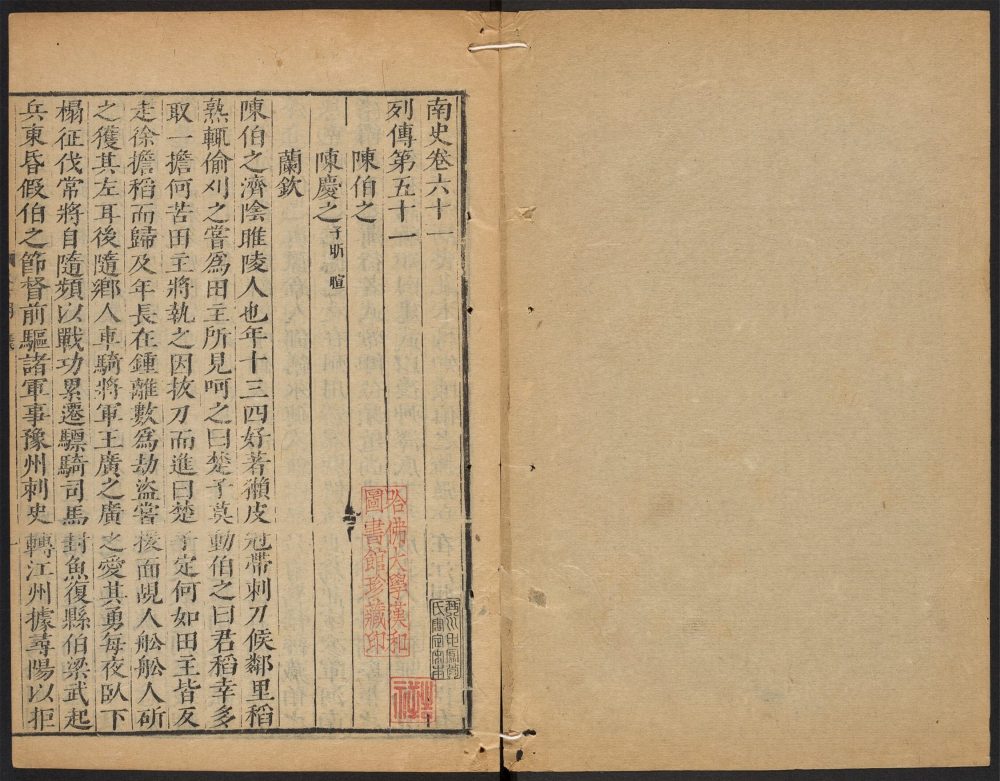 南史卷六十一
列傳第五十一
陳伯之
陳慶之子昕 暄
蘭欽
陳伯之濟陰睢陵人也年十三四好著獺皮冠帶刺刀候鄰里稻
熟輒偷刈之嘗爲田主所見呵之曰楚子莫動伯之曰君稻幸多
取一擔何苦田主將執之因拔刀而進曰楚子定何如田主皆反
走徐擔稻而歸及年長在鍾離數爲劫盜嘗援面覘人船船人斫
之獲其左耳後隨鄉人車騎將軍王廣之廣之愛其勇每夜臥下
榻征伐常將自隨頻以戰功累遷驃騎司馬封魚復縣伯梁武起
兵東昏假伯之節督前驅諸軍事豫州刺史轉江州據尋陽以拒
哈佛大學漢和
圖書館珍藏印